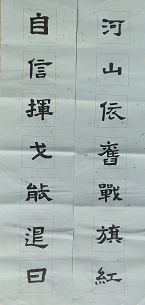 自信揮戈能退日
河山依舊戰旗紅